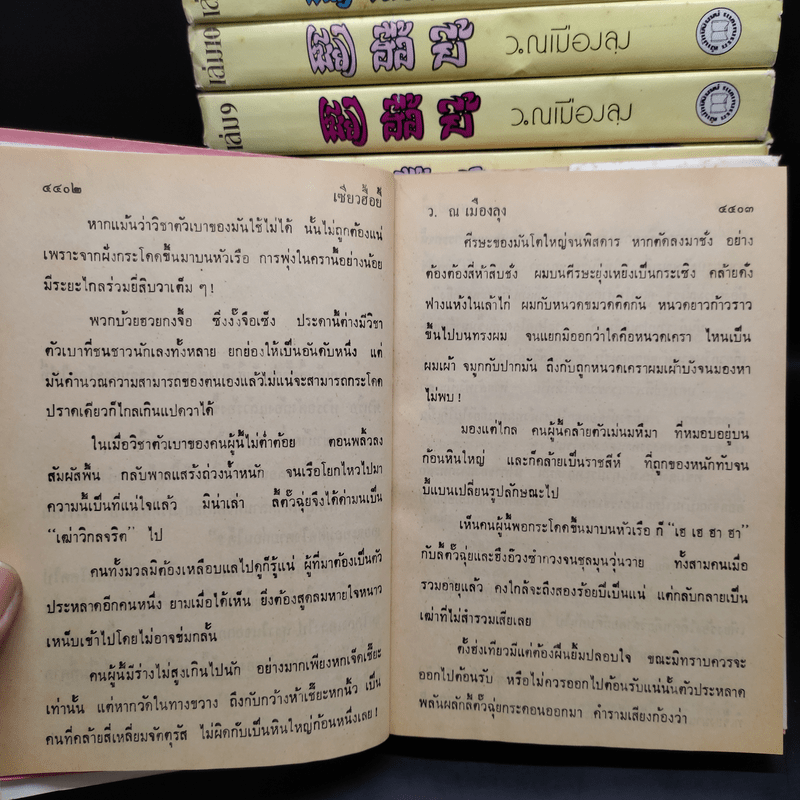 เล่ม10
เซียวฮื้อยี้
ว.ณเมืองลุง
เล่ม9
เซียวฮื้อยี้
ว.ณเมืองลุง
๔๔๐๒
เซียวฮื้อยี้
หากแม้นว่าวิชาตัวเบาของมันใช้ไม่ได้ นั้นไม่ถูกต้องแน่
เพราะจากฝั่งกระโดดขึ้นมาบนหัวเรือ การพุ่งในครานี้อย่างน้อย
มีระยะไกลร่วมยี่สิบวาเต็ม ๆ!
พวกบ้วยฮวยกงจื้อ ซึ่งงั๊งจือเซ็ง ประดานี้ต่างมีวิชา
ตัวเบาที่ชนชาวนักเลงทั้งหลาย ยกย่องให้เป็นอันดับหนึ่ง แต่
มันคำนวณความสามารถของตนเองแล้วไม่แน่จะสามารถกระโดด
ปราดเดียวก็ไกลเกินแปดวาได้
ในเมื่อวิชาตัวเบาของคนผู้นี้ไม่ต่ำต้อย ตอนพลิ้วลง
สัมผัสพื้น กลับพาลแสร้งถ่วงน้ำหนัก จนเรือโยกไหวไปมา
ความนี้เป็นที่แน่ใจแล้ว มิน่าเล่า ลี้ตั๊วฉุ่ยจึงได้ด่ามนเป็น
“เฒ่าวิกลจริต” ไป
คนทั้งมวลมิต้องเหลือบแลไปดูก็รู้แน่ ผู้ที่มาต้องเป็นตัว
ประหลาดอีกคนหนึ่ง ยามเมื่อได้เห็น ยิ่งต้องสูดลมหายใจหนาว
เหน็บเข้าไปโดยไม่อาจข่มกลั้น
คนผู้นี้มีร่างไม่สูงเกินไปนัก อย่างมากเพียงหกเจ็ดเชี๊ยะ
เท่านั้น แต่หากวัดในทางขวาง ถึงกับกว้างห้าเชี๊ยะหกนิ้ว เป็น
คนที่คล้ายสี่เหลี่ยมจัตุรัส ไม่ผิดกับเป็นหินใหญ่ก้อนหนึ่งเลย!
ว. ณ เมืองลุง
๔๔๐๓
ศีรษะของมันโตใหญ่จนพิสดาร หากตัดลงมาชั่ง อย่าง
ต้องต้องสี่ห้าสิบชั่ง ผมบนศีรษะยุ่งเหยิงเป็นกระเซิง คล้ายดั่ง
ฟางแห้งในเล้าไก่ ผมกับหนวดขมวดติดกัน หนวดยาวก้าวราว
ขึ้นไปบนทรงผม จนแยกมิออกว่าใดคือหนวดเครา ไหนเป็น
ผมเผ้า จมูกกับปากมัน ถึงกับถูกหนวดเคราผมเผ้าบังจนมองหา
ไม่พบ!
มองแต่ไกล คนผู้นี้คล้ายตัวเม่นมหึมา ที่หมอบอยู่บน
ก้อนหินใหญ่ และก็คล้ายเป็นราชสีห์ ที่ถูกของหนักทับจน
บี้แบนเปลี่ยนรูปลักษณะไป
เห็นคนผู้นี้พอกระโดดขึ้นมาบนหัวเรือ ก็ “เฮ เฮ ฮา ฮา”
กับลี้ตั๊วฉุ่ยและฮึงอ๊วงซำกวงจนชุลมุนวุ่นวาย ทั้งสามคนเมื่อ
รวมอายุแล้ว คงใกล้จะถึงสองร้อยปีเป็นแน่ แต่กลับกลายเป็น
เฒ่าที่ไม่สำรวมเสียเลย
ตั้งฮ่งเทียวมีแต่ต้องฝืนยิ้มปลอบใจ ขณะมิทราบควรจะ
ออกไปต้อนรับ หรือไม่ควรออกไปต้อนรับแน่นั้นตัวประหลาด
พลันผลักลี้ตั๊วฉุ่ยกระดอนออกมา คำรามเสียงก้องว่า